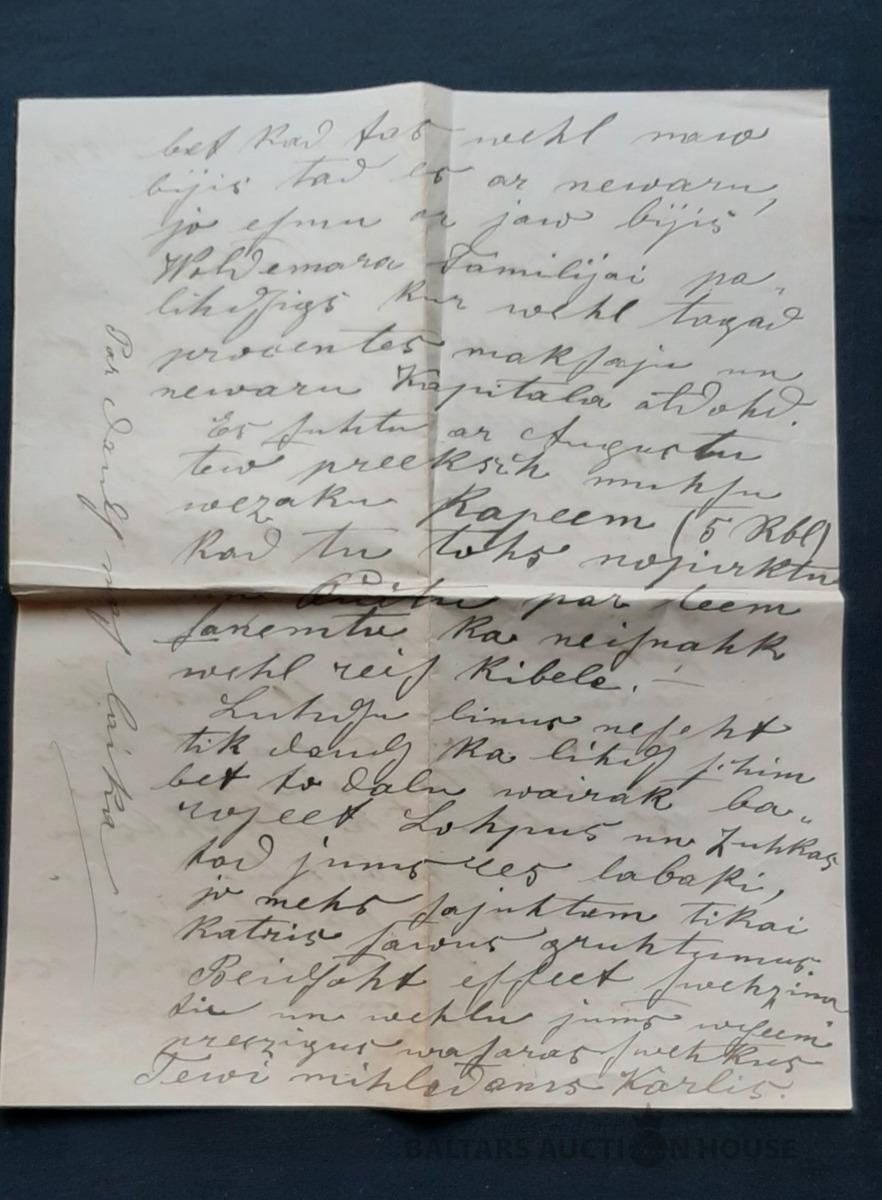 bet kad tas wehl naw
bijis tad es ar newaru,
jo esmu ar jaw bijis
Woldemara Familijai pa„
lihdsigs kur wehl tagad
procentes maksaju un
newaru Kapitala atdohd.
Es suhtu ar Augustu
tew preeksch muhsu
wezaku Kapeem (5 Rbl)
kad tu tohs nopirktu
par teem
saņemtu ka neisnahk
wehl reis kibele. —
Luhdsu linus neseht
tik daudz ka lihds schim
bet to dalu wairak ba„
rojeet Lohpus un Zuhkas
tad jums ees labaki,
jo mehs sajuhtam tikai
katris sawus gruhtumus.
Beidsoht esseet swehzina
ti un wehlu jums wiseem
preezigus wasaras swehtkus
Tewi mihledams Karlis.
Par daudz mas laika
BALTARS AUCTION HOUSE